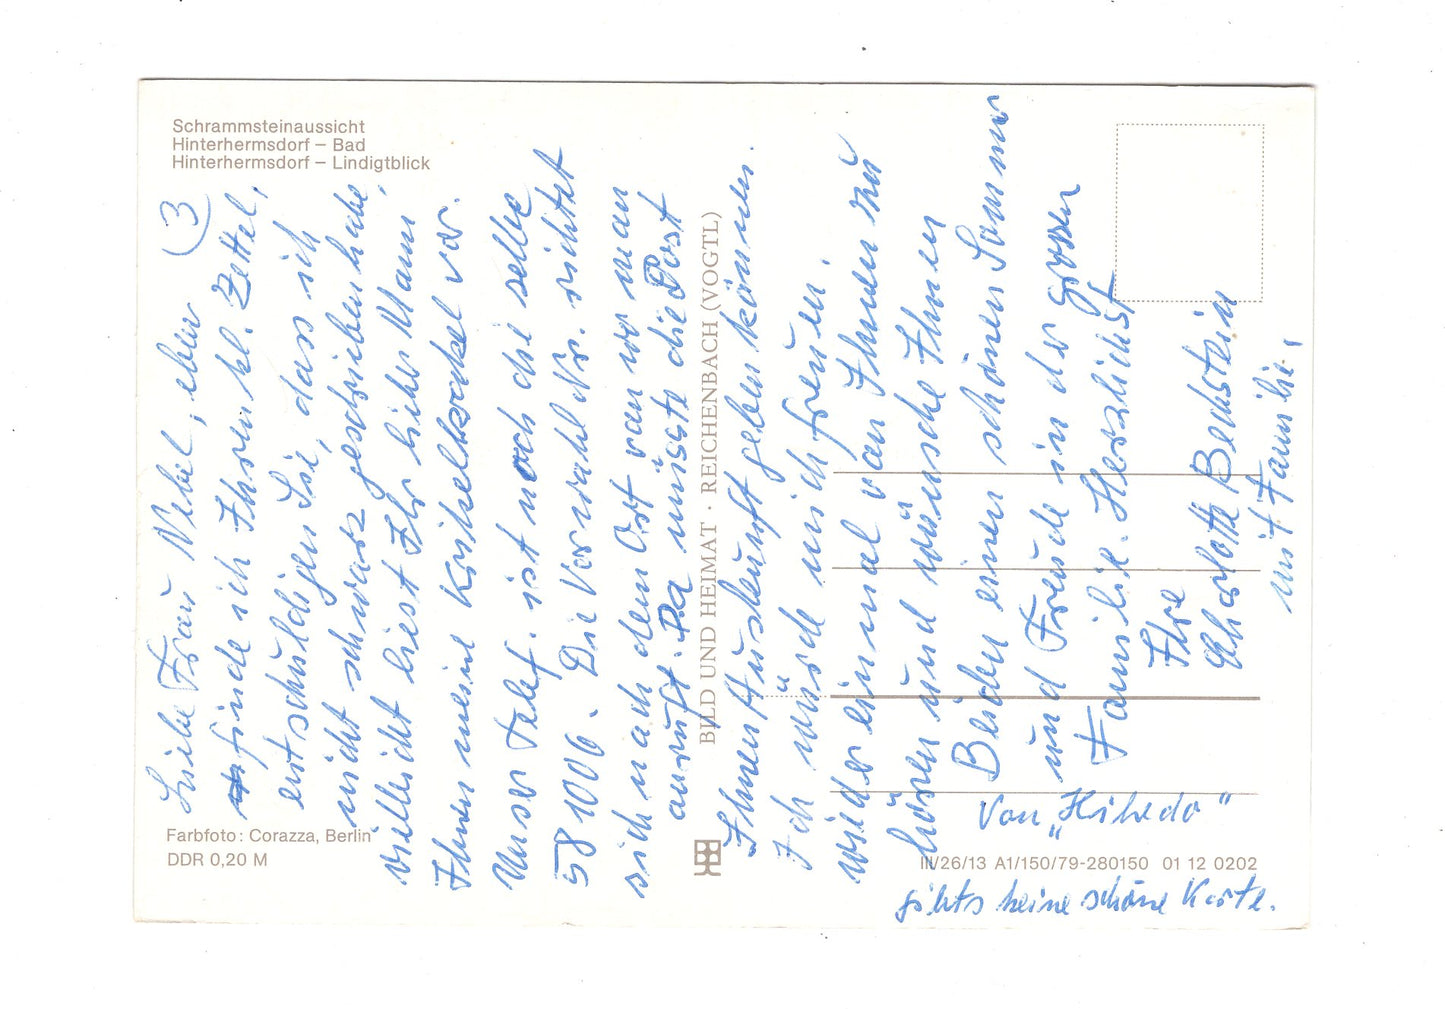 Schrammsteinaussicht
Hinterhermsdorf – Bad
Hinterhermsdorf – Lindigtblick
3
Liebe Frau Nebel, eben
finde ich Ihren kl. Zettel,
entschuldigen Sie, dass ich
nicht schwarz geschrieben habe,
vielleicht liest Ihr lieber Mann
Ihnen meine Kritzelkrakel vor.
Unser Telef. ist noch die selbe
581006. Die Vorwahl Nr. richtet
sich nach dem Ort von wo man
anruft. Da müsste die Post
Ihnen Auskunft geben können.
Ich würde mich freuen,
wieder einmal von Ihnen zu
hören und wünsche Ihnen
Beiden einen schönen Sommer
und Freude in der grossen
Familie. Herzlichst
Ihre
Charlotte Bechstein
mit Familie,
Von „Hihedo"
gibts keine schöne Karte.
BILD UND HEIMAT · REICHENBACH (VOGTL)
Farbfoto: Corazza, Berlin
DDR 0,20 M
III/26/13 A1/150/79-280150 01 12 0202